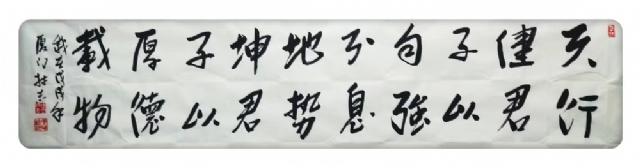 天行
健君
子以
自強
不息
地勢
坤君
子以
厚德
載物
歲在戊戌年